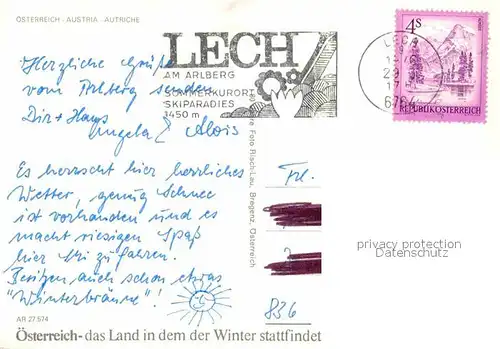 ÖSTERREICH - AUSTRIA - AUTRICHE
LECH
AM ARLBERG
SOMMERKURORT
SKIPARADIES
1450 m
LECH
17
6764
4 S
REPUBLIK ÖSTERREICH
Herzliche Grüße
vom Arlberg senden
Dir + Hans
Angela & Alois
Es herrscht hier herrliches
Wetter, genug Schnee
ist vorhanden und es
macht riesigen Spaß
hier Ski zu fahren.
Besitzen auch schon etwas
"Winterbräune"!
Foto Risch-Lau, Bregenz, Österreich
Frl.
836
privacy protection
Datenschutz
AR 27 574
Österreich - das Land in dem der Winter stattfindet